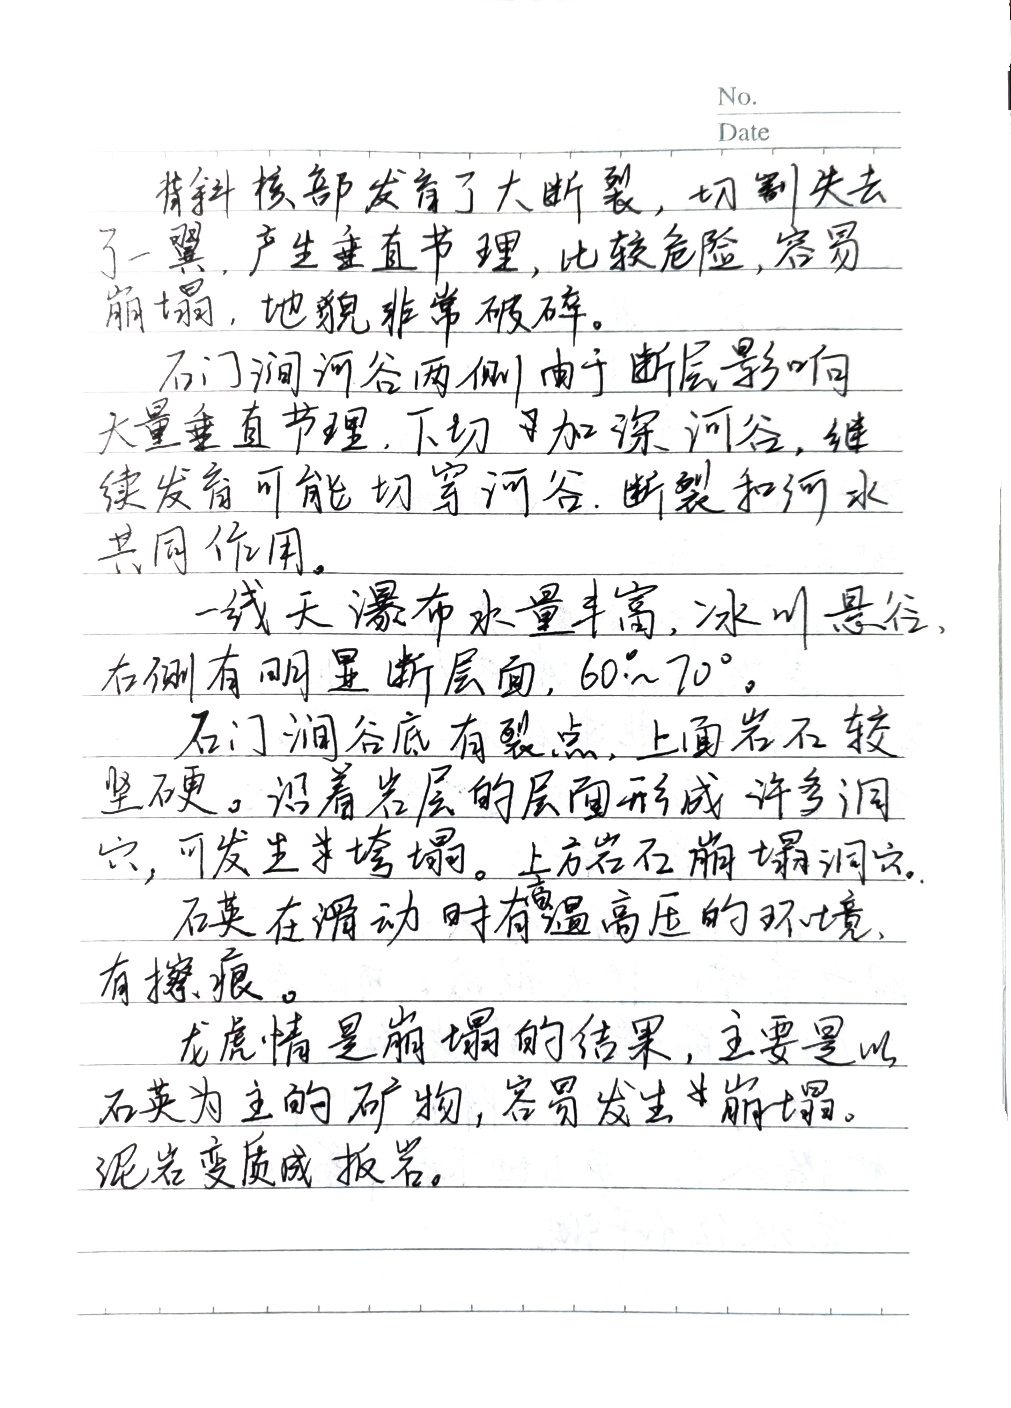 No.
Date
背斜核部发育了大断裂，切割失去
了一翼，产生垂直节理，比较危险，容易
崩塌，地貌非常破碎。
石门涧河谷两侧由于断层影响
大量垂直节理，下切加深河谷，继
续发育可能切穿河谷．断裂和河水
共同作用。
一线天瀑布水量丰富，冰川悬谷、
右侧有明显断层面，60°~70°。
石门涧谷底有裂点，上面岩石较
坚硬。沿着岩层的层面形成许多洞
穴，可发生垮塌。上方岩石崩塌洞穴。
石英在滑动时有高温高压的环境、
有擦痕。
龙虎情是崩塌的结果，主要是以
石英为主的矿物，容易发生崩塌。
泥岩变质成板岩。